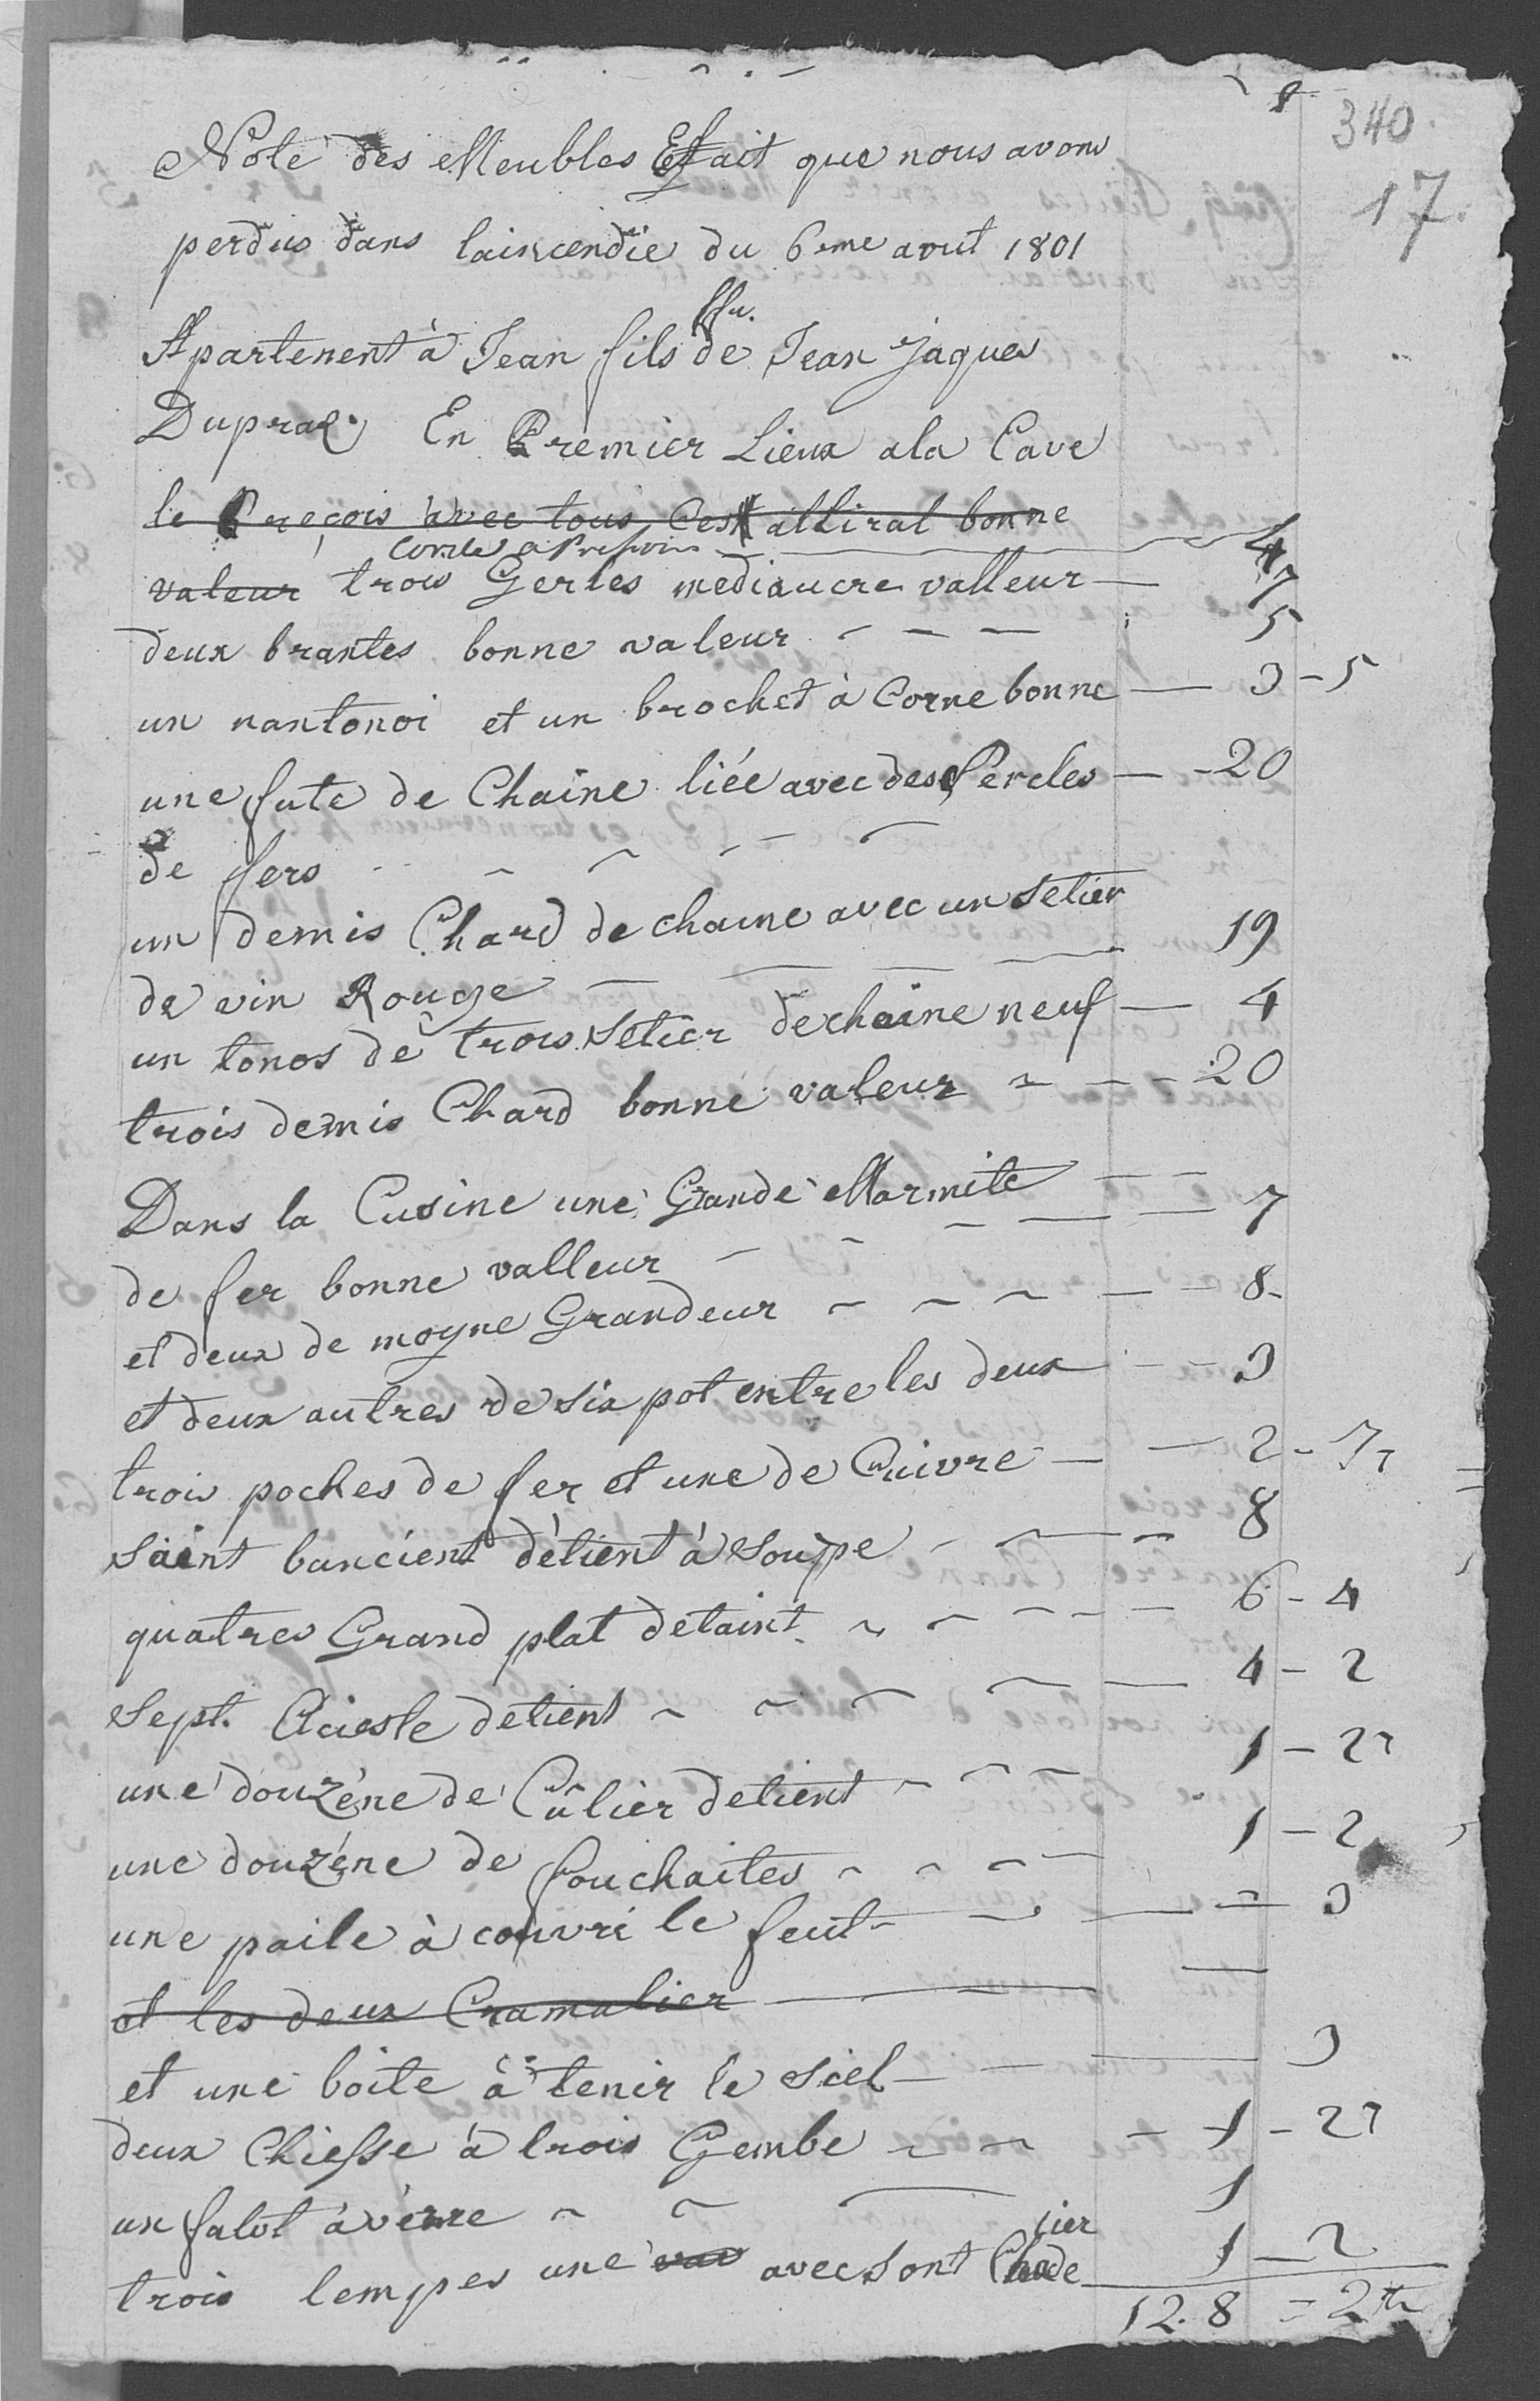 340.
17.
Note des Meubles Effait que nous avons
perdus dans laincendie du 6eme avrit 1801
ffu.
Apartenent à Jean fils de Jean jaques
Dupraz. En Premier Lieux ala Cave
le Preçois avec tous Ces attiral bonne
Corde a Pressoir — 4
valeur trois Gerles mediaucre valleur — 7
deux brantes bonne valeur - - - 5
un nantonoi et un brochet à Corne bonne — 3 - 5
une fute de Chaine liée avec des Cercles — 20
de fers
un demis Chard de chaine avec un setier
de vin Rouge — 19
un tonos de trois setier de chaine neuf — 4
trois demis Chard bonne valeur - - - 20
Dans la Cusine une Grande Marmite
de fer bonne valleur — 7
et deux de moyne Grandeur - - - 8-
et deux autres de six pot entre les deux - - 3
trois poches de fer et une de Cuivre — 2 - 7
saint bancient détient à soupe - - - 8
quatres Grand plat detaint - - - 6 - 4
Sept. Aciesle detient - - - 4 - 2
une douzéne de Cûlier detient - - - 1 - 2
une douzéne de fouchaites - - - 1 - 2
une paile à couvri le feut - - - 3
et les deux Cramalier
et une boite à tenir le siel — 3
deux Chiesse à trois Gembe - - - 1 - 2
un falot à vérre - - 1
jier
trois lempes une avec sont Chade 1 - 2
12.8 = 2